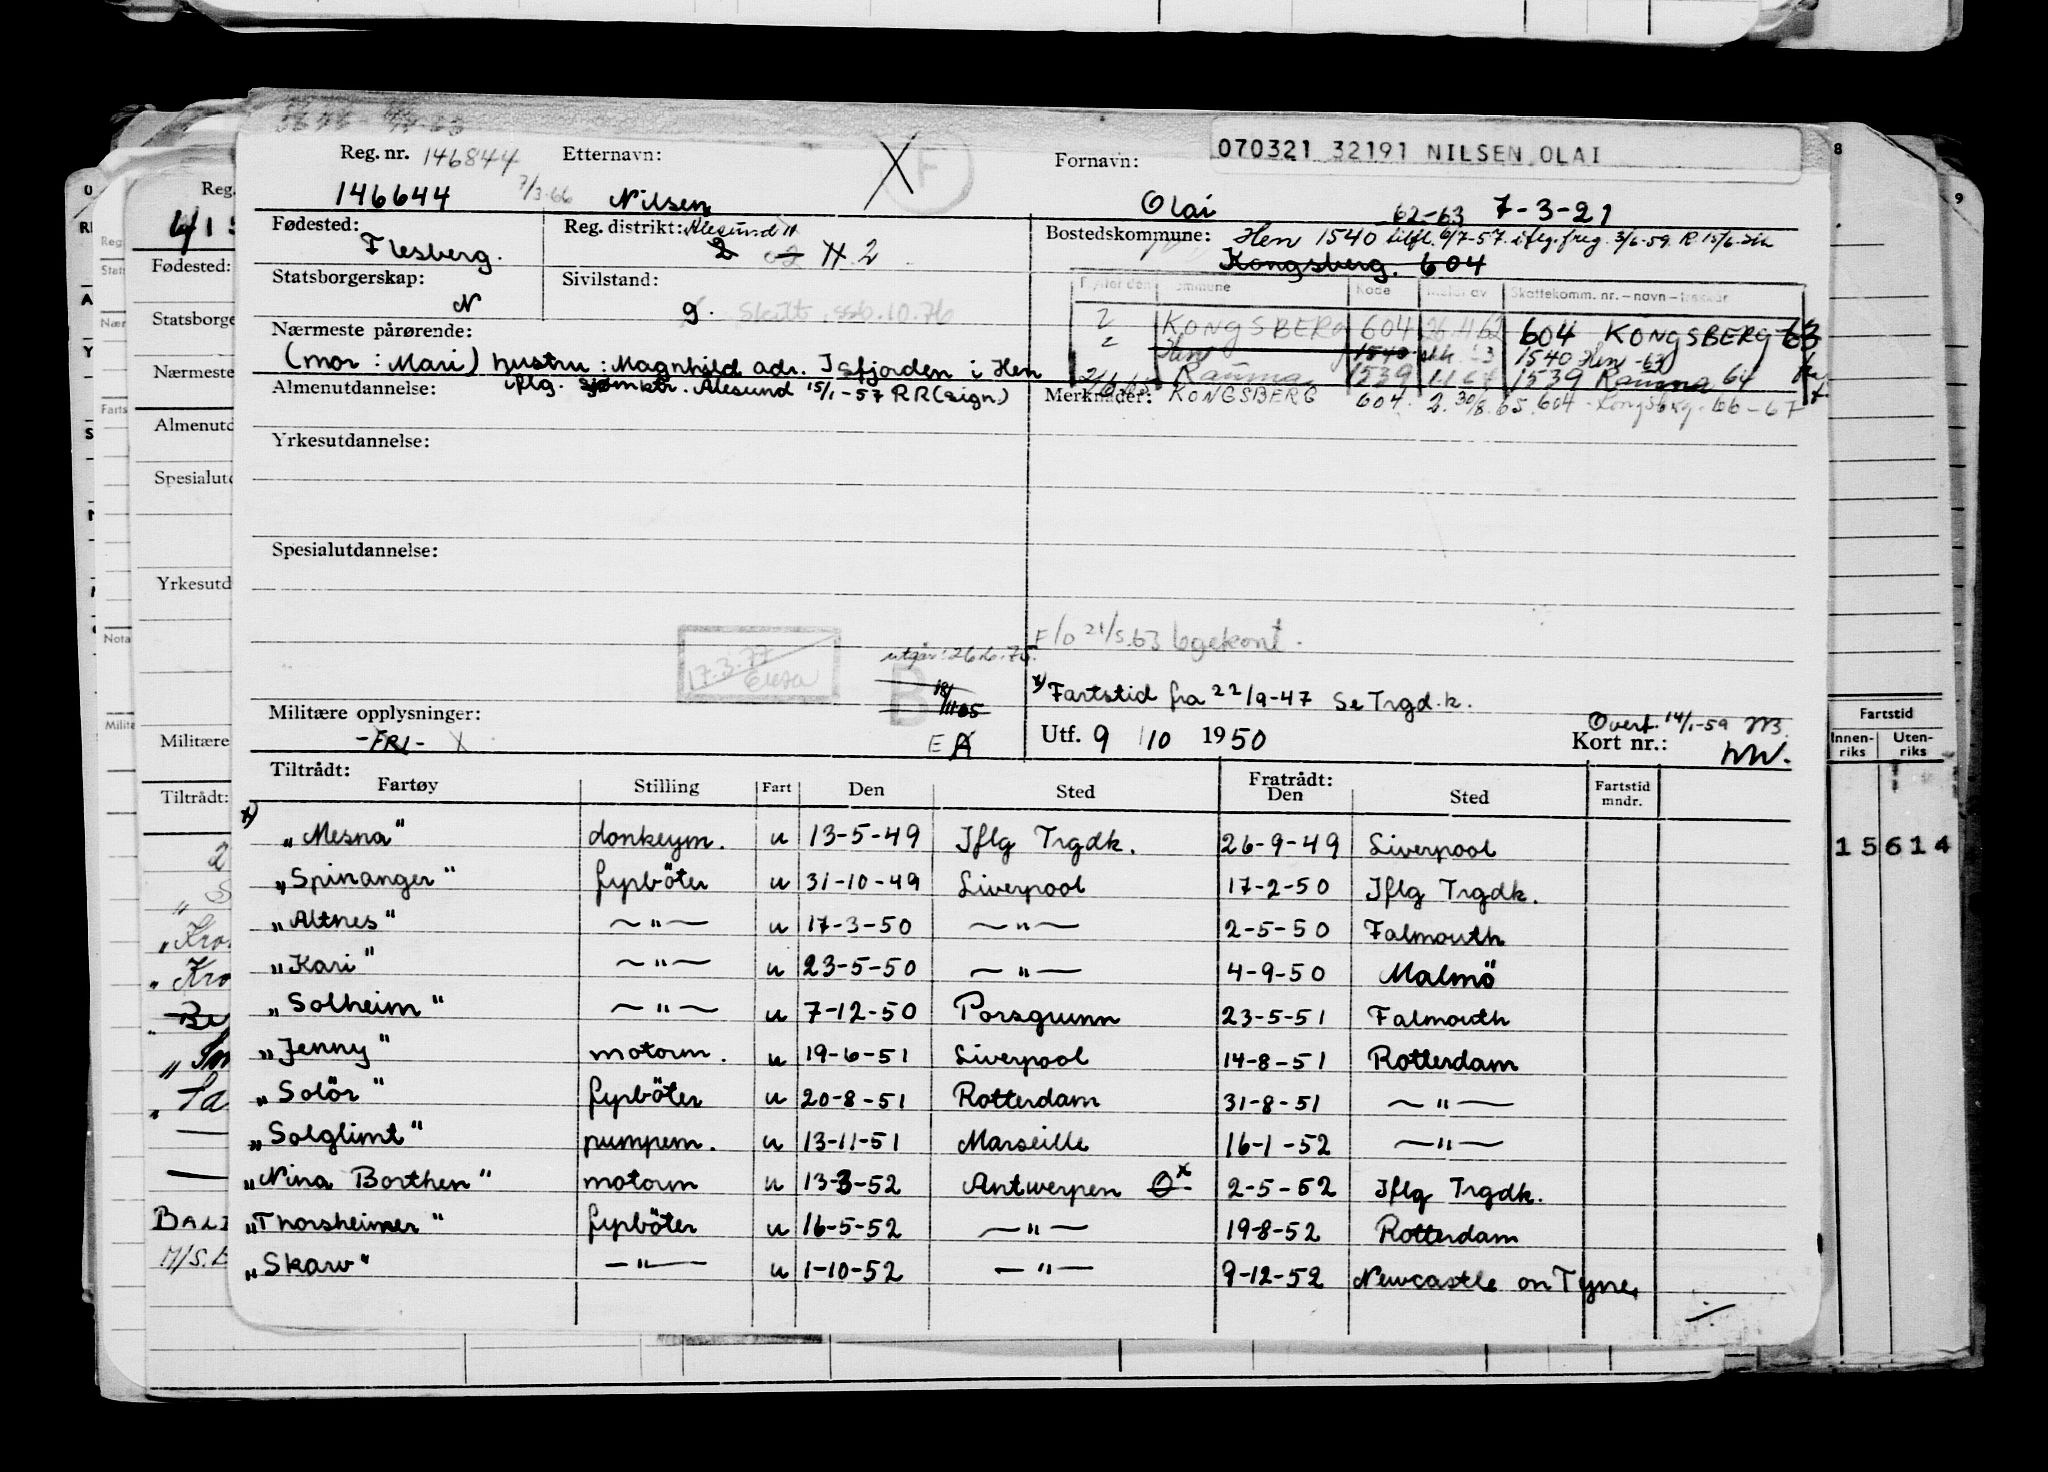 070321 32191 NILSEN, OLAI
Reg. nr. 146844 Etternavn: Fornavn:
146644 7/3-66 Nilsen X F Olai 62-63 7-3-21
Fødested: Reg. distrikt: Ålesund 11 Bostedskommune: Hen 1540 tilfl. 6/7-57. iflg. freg. 3/6-59. R 15/6
Flesberg. 2 H 2 Kongsberg. 604
Statsborgerskap: Sivilstand: Kode Skattekomm. nr. – navn –
N g. Skilt . ssb. 10.76 2 KONGSBERG 604 26.11.62 604 KONGSBERG 63
Nærmeste pårørende: Hen 1540 1540 Hen -63
(mor : Mari) hustru : Magnhild adr. Isfjorden i Hen Rauma 1539 1539 Rauma 64
iflg. sjømktr. Ålesund 15/1-57 RR (sign)
Almenutdannelse: Merknader: KONGSBERG 604. 2. 30/8.65. 604 - Kongsberg - 66-67
Yrkesutdannelse:
Spesialutdannelse:
F/O 21/5.63 bgekont.
17.3.77
utgår: 26.6.75.
B
x) Fartstid fra 22/9-47 Se Trgd.k.
Militære opplysninger: Overf. 14/1-59
-FRI- X E A Utf. 9/10 1950 Kort nr.:
Tiltrådt: Fratrådt:
Fartøy Stilling Fart Den Sted Den Sted Fartstid mndr.
x) „Mesna" donkeym. u 13-5-49 Iflg Trgdk. 26-9-49 Liverpool
„Spinanger" fyrböter u 31-10-49 Liverpool 17-2-50 Iflg Trgdk.
„Altnes" —"— u 17-3-50 —"— 2-5-50 Falmouth
„Kari" —"— u 23-5-50 —"— 4-9-50 Malmö
„Solheim" —"— u 7-12-50 Porsgrunn 23-5-51 Falmouth
„Jenny" motorm. u 19-6-51 Liverpool 14-8-51 Rotterdam
„Solör" fyrböter u 20-8-51 Rotterdam 31-8-51 —"—
„Solglimt" pumpem. u 13-11-51 Marseille 16-1-52 —"—
„Nina Borthen" motorm u 13-3-52 Antwerpen O x 2-5-52 Iflg Trgdk.
„Thorsheimer" fyrböter u 16-5-52 —"— 19-8-52 Rotterdam
„Skaro" —"— u 1-10-52 —"— 9-12-52 Newcastle on Tyne.
Fartstid
Innenriks Utenriks
15 614